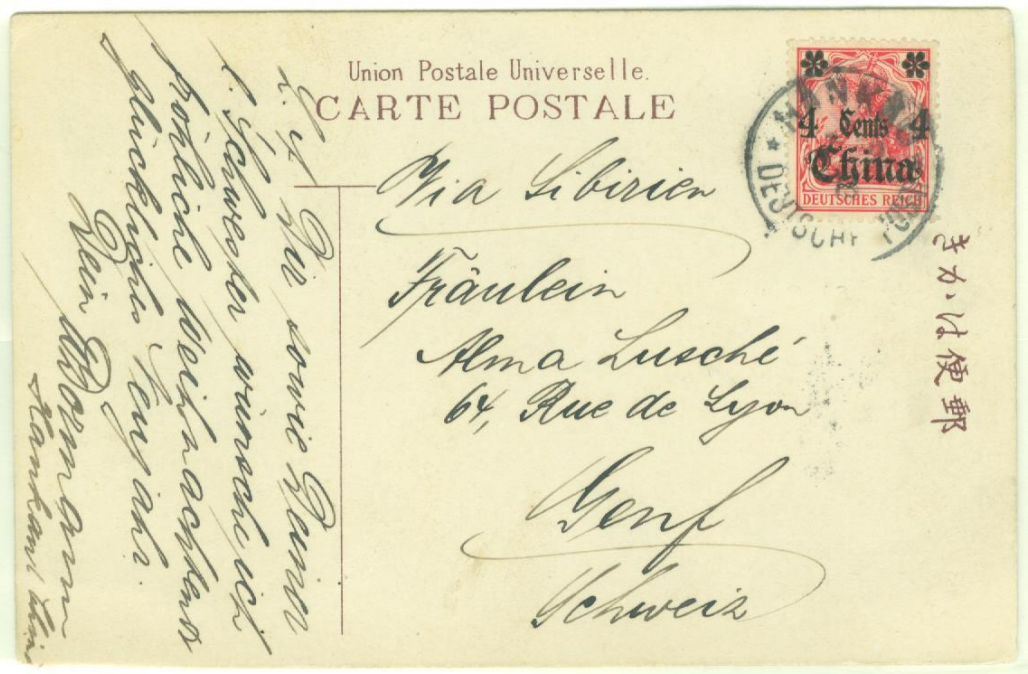 Union Postale Universelle.
CARTE POSTALE
4 Cents 4
China
DEUTSCHES REICH
HANKAU
* DEUTSCHE POST
きかは便郵
Via Sibirien
Fräulein
Alma Lusché
64, Rue de Lyon
Genf
Schweiz
Dir sowie Deiner
l. Schwester wünsche ich
fröhliche Weihnachten &
glückliches Neujahr.
Dein
Hankau